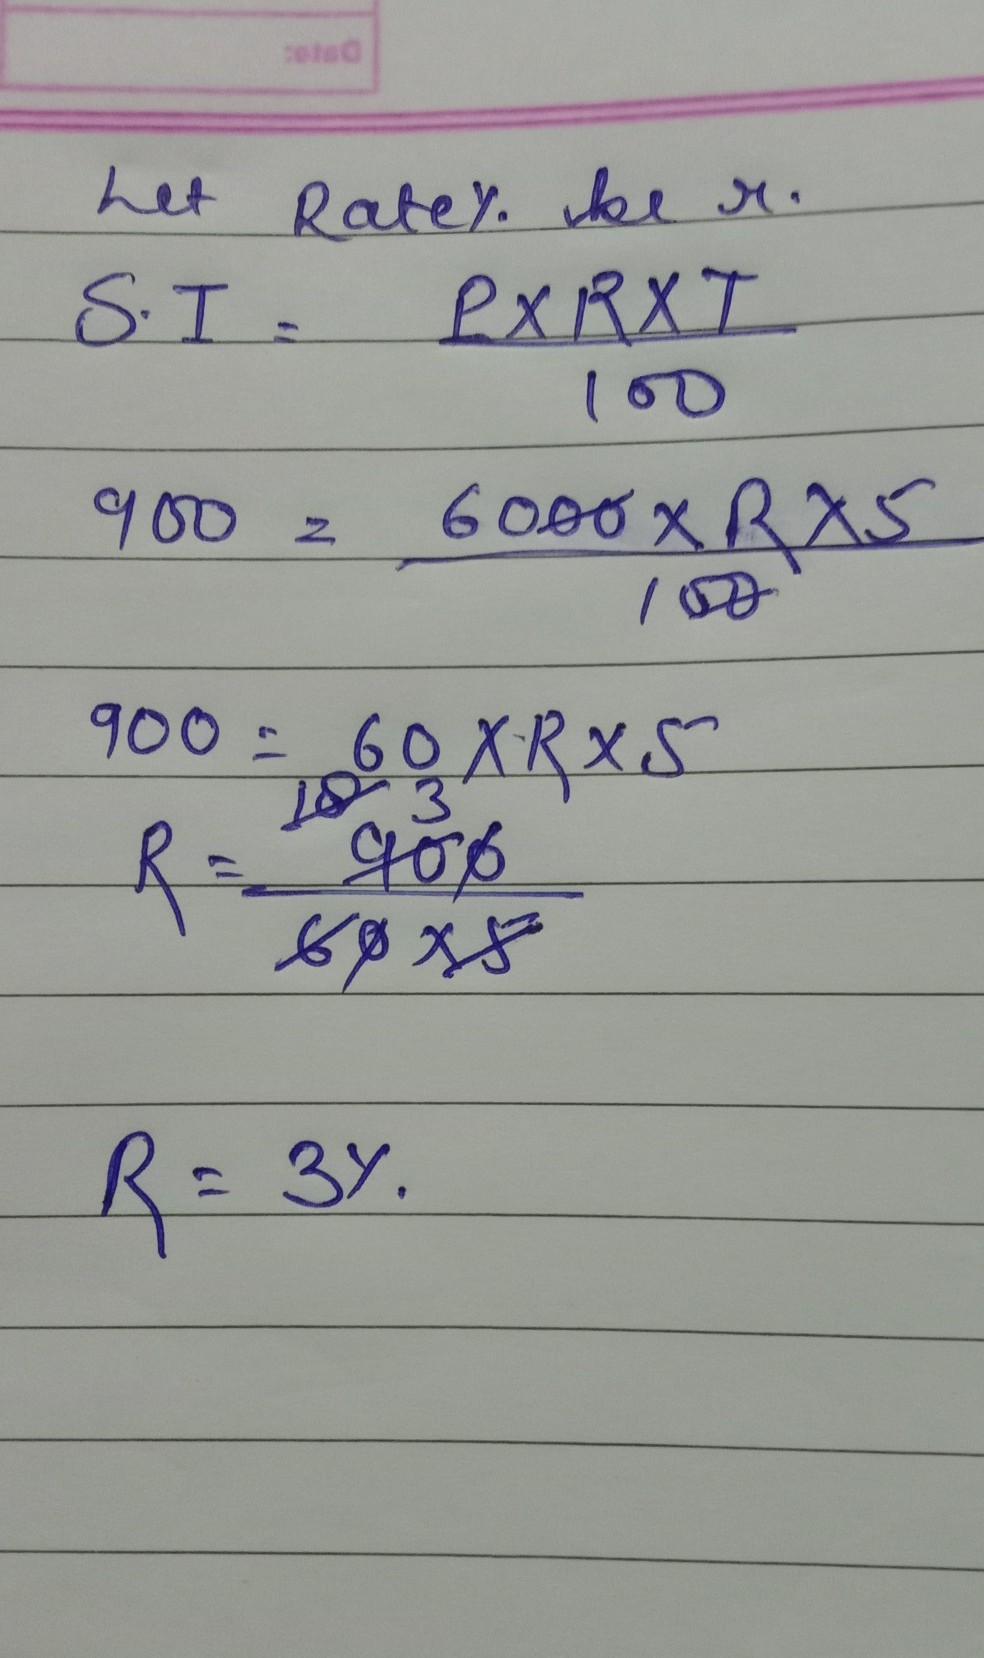 Date:
Let Rate%. be r.
S.I = P×R×T
100
900 = 6000×R×5
100
900 = 60×R×5
3
R = 900
60×5
R = 3%.